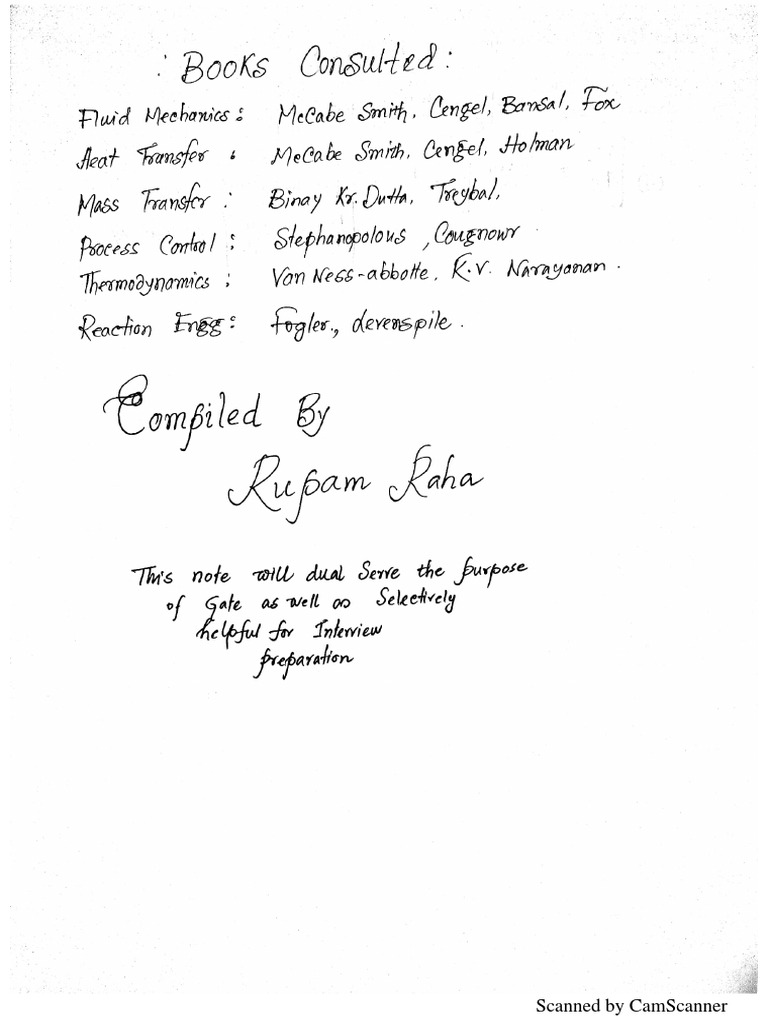 : Books Consulted:
Fluid Mechanics: McCabe Smith, Cengel, Bansal, Fox
Heat Transfer : McCabe Smith, Cengel, Holman
Mass Transfer: Binay Kr. Dutta, Treybal,
Process Control: Stephanopolous, Cougnowr.
Thermodynamics: Van Ness-abbotte, K.V. Narayanan.
Reaction Engg: Fogler, Levenspile.
Compiled By
Rupam Raha
This note will dual Serve the purpose
of Gate as well as Selectively
helpful for Interview
preparation
Scanned by CamScanner